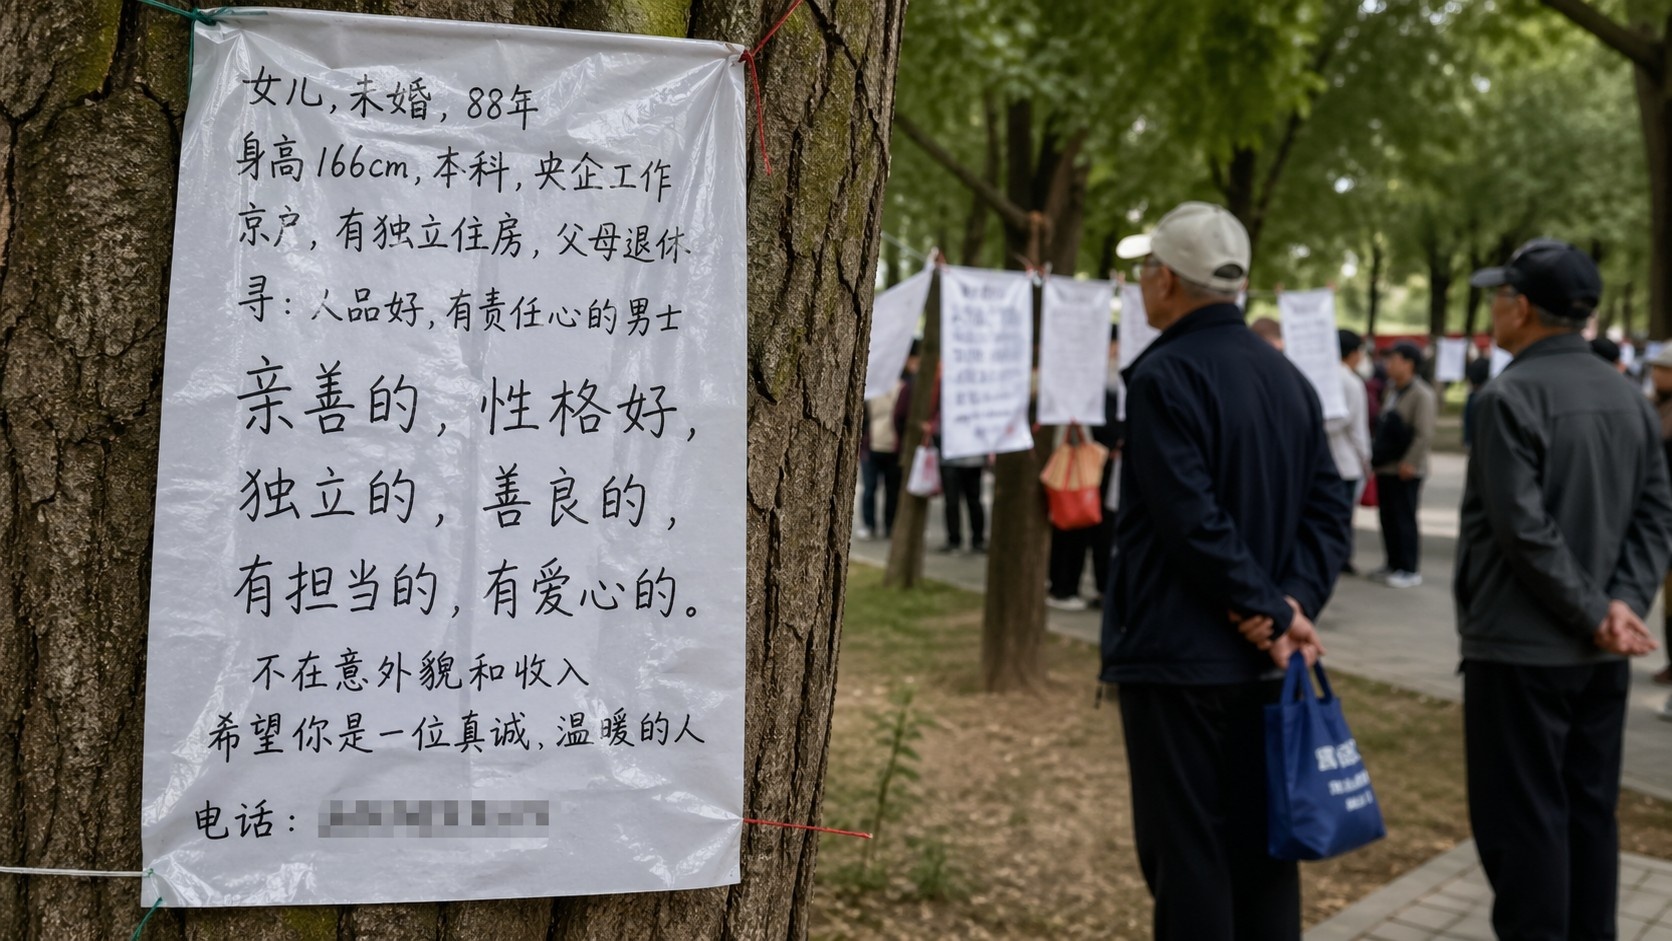 女儿,未婚,88年
身高166cm,本科,央企工作
京户,有独立住房,父母退休
寻:人品好,有责任心的男士
亲善的,性格好,
独立的,善良的,
有担当的,有爱心的。
不在意外貌和收入
希望你是一位真诚,温暖的人
电话: